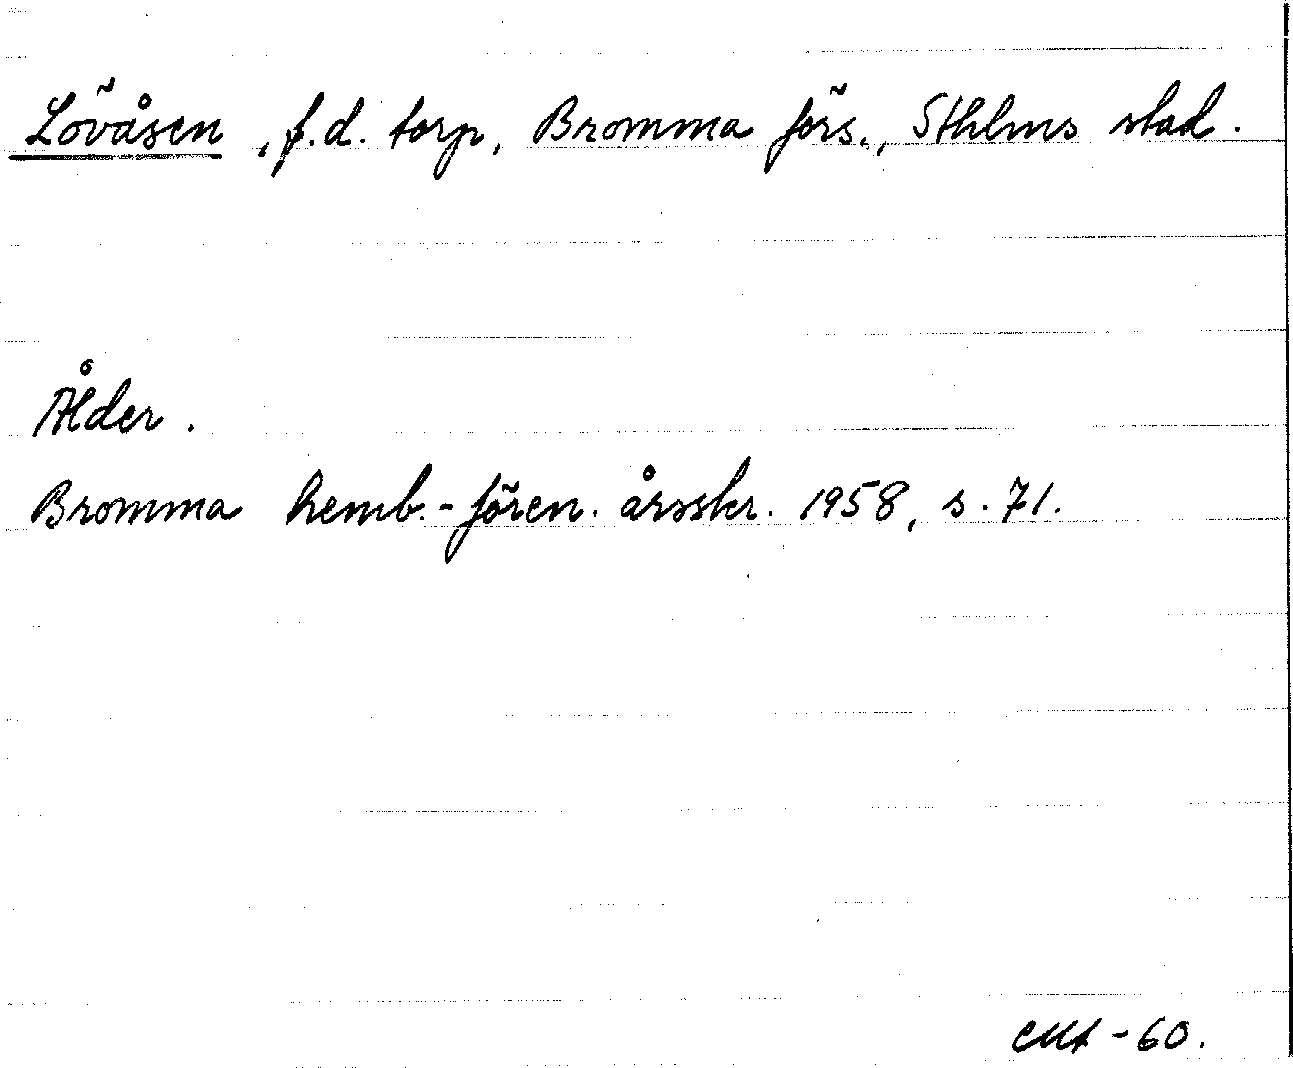 Lövåsen, f.d. torp, Bromma förs., Sthlms stad.
Ålder.
Bromma hemb.-fören. årsskr. 1958, s. 71.
-60.